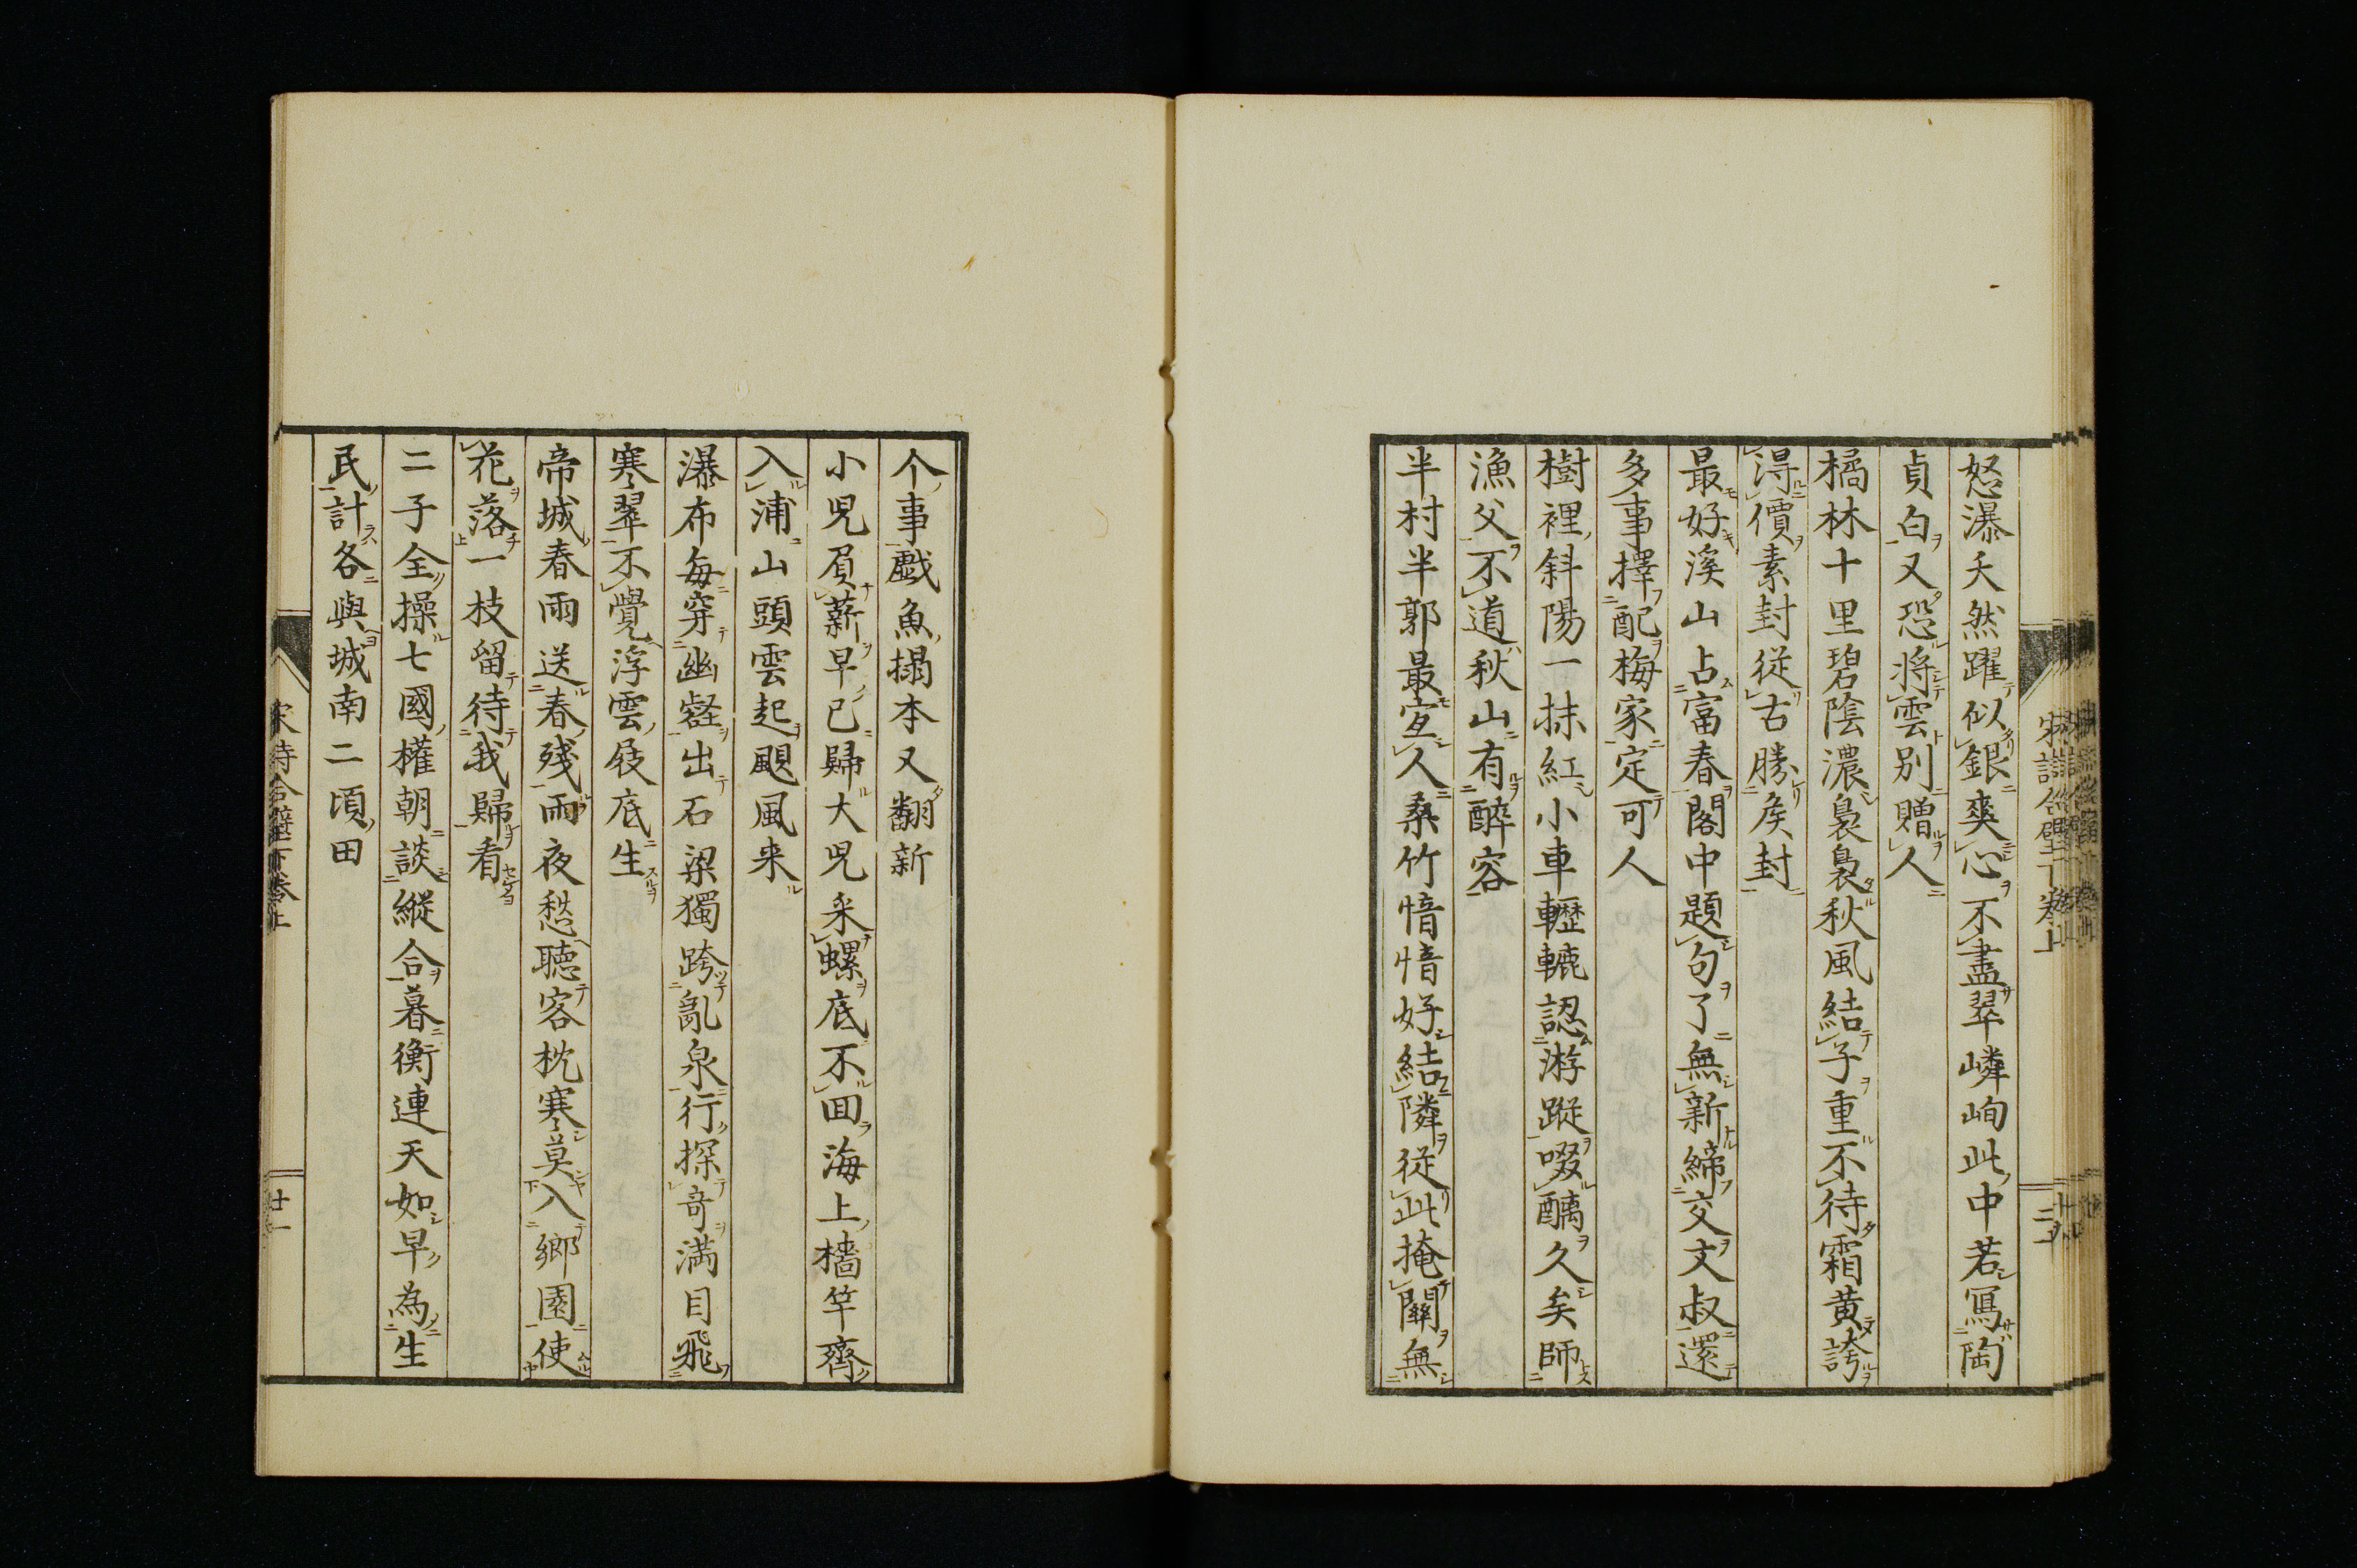 怒瀑夭然躍似銀爽心不盡翠嶙峋此中若寫陶
貞白又恐將雲別贈人
橘林十里碧陰濃裊裊秋風結子重不待霜黄誇
得價素封從古勝侯封
最好溪山占富春閣中題句了無新締交文叔還
多事擇配梅家定可人
樹裡斜陽一抹紅小車轣轆認游蹤啜醨久矣師
漁父不道秋山有醉容
半村半郭最宜人桑竹愔愔好結隣從此掩關無
个事戲魚搨本又翻新
小児負薪早已歸大児采螺底不回海上檣竿齊
入浦山頭雲起颶風来
瀑布毎穿幽壑出石梁獨跨亂泉行探奇満目飛
寒翠不覺浮雲屐底生
帝城春雨送春残雨夜愁聴客枕寒莫入郷園使
花落一枝留待我歸看
二子全操七國權朝談縦合暮衡連天如早為生
民計各與城南二頃田
宋詩合璧下巻上
廿一